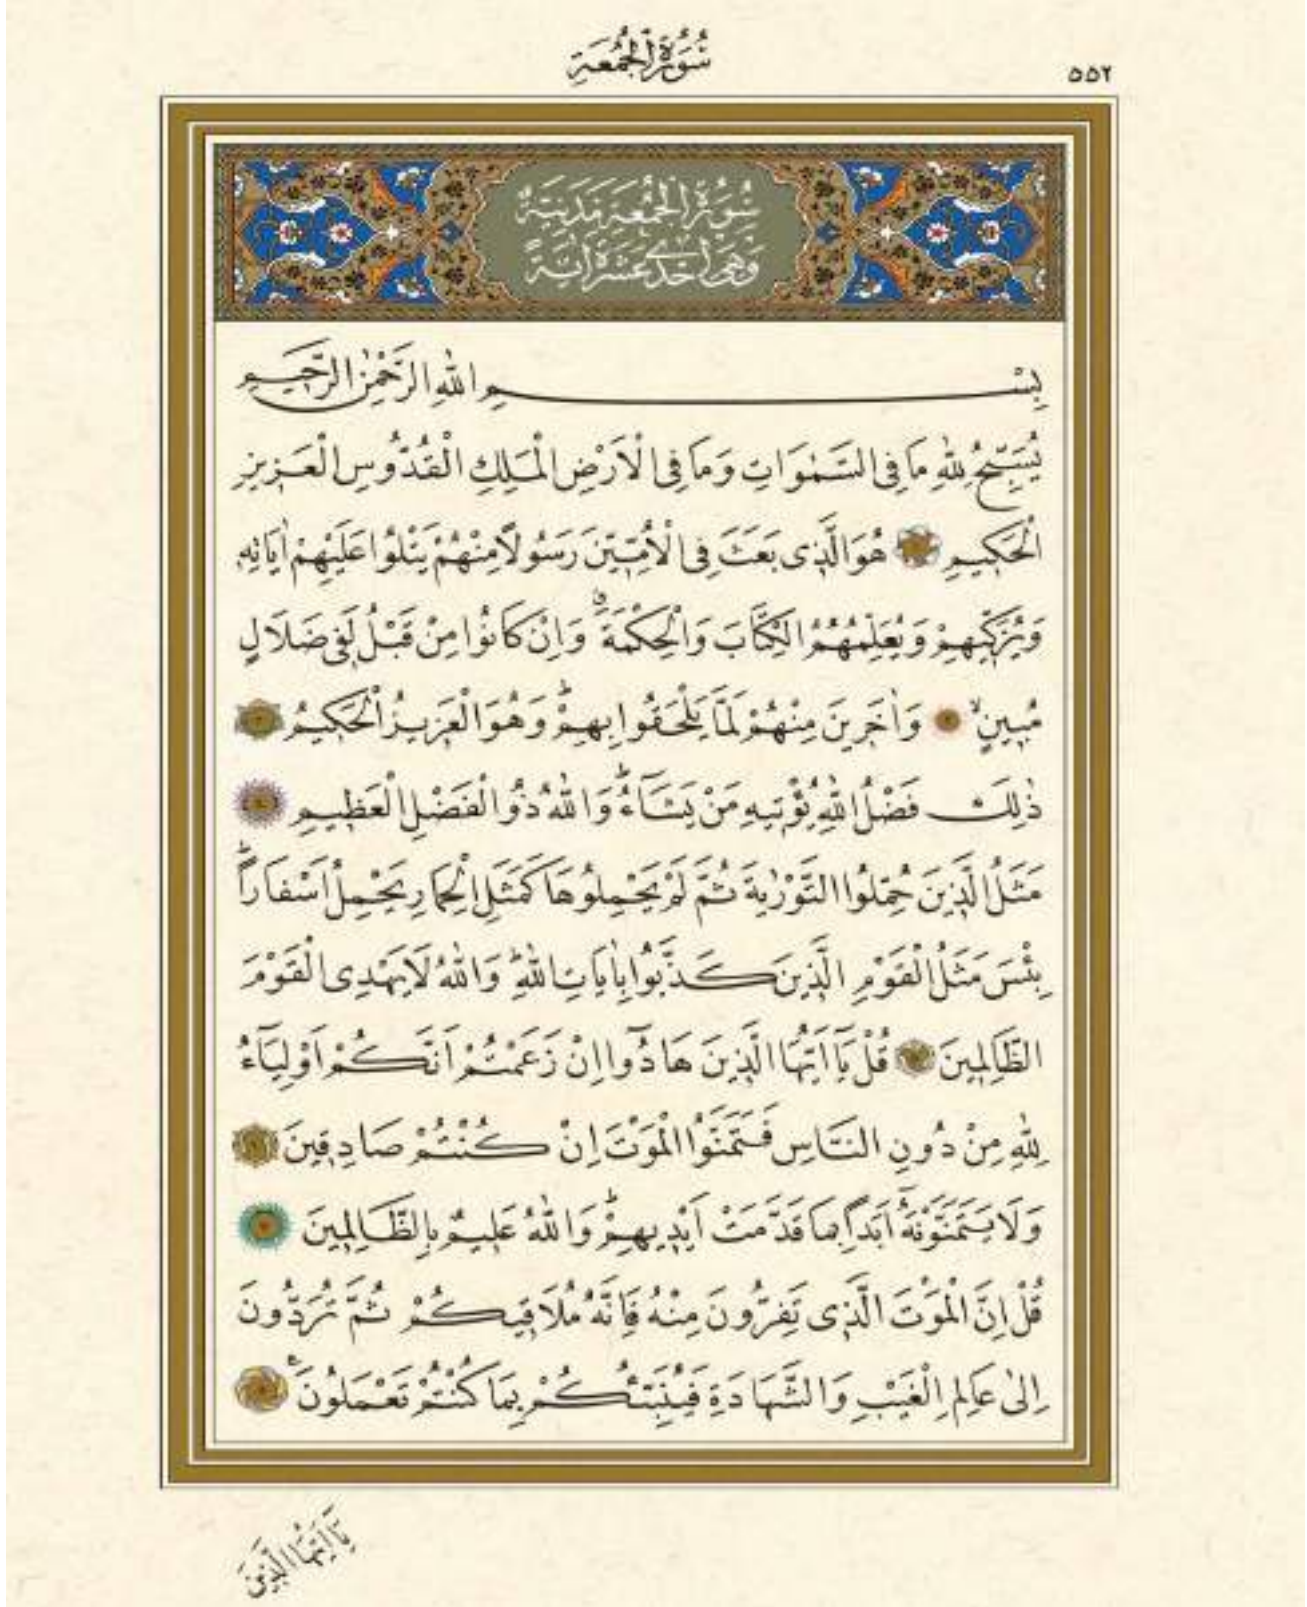 سُورَةُ الْجُمُعَةِ
٥٥٢
سُورَةُ الْجُمُعَةِ مَدَنِيَّةٌ
وَهِيَ اِحْدٰى عَشْرَةَ اٰيَةً
بِسْمِ اللّٰهِ الرَّحْمٰنِ الرَّحِيمِ
يُسَبِّحُ لِلّٰهِ مَا فِى السَّمٰوَاتِ وَمَا فِى الْاَرْضِ الْمَلِكِ الْقُدُّوسِ الْعَزِيزِ
الْحَكِيمِ ١ هُوَ الَّذِى بَعَثَ فِى الْاُمِّيّٖنَ رَسُولًا مِنْهُمْ يَتْلُوا عَلَيْهِمْ اٰيَاتِهٖ
وَيُزَكّٖيهِمْ وَيُعَلِّمُهُمُ الْكِتَابَ وَالْحِكْمَةَۗ وَاِنْ كَانُوا مِنْ قَبْلُ لَفِى ضَلَالٍ
مُبِينٍۙ ٢ وَاٰخَرِينَ مِنْهُمْ لَمَّا يَلْحَقُوا بِهِمْۜ وَهُوَ الْعَزِيزُ الْحَكِيمُ ٣
ذٰلِكَ فَضْلُ اللّٰهِ يُؤْتِيهِ مَنْ يَشَٓاءُۜ وَاللّٰهُ ذُو الْفَضْلِ الْعَظِيمِ ٤
مَثَلُ الَّذِينَ حُمِّلُوا التَّوْرٰيةَ ثُمَّ لَمْ يَحْمِلُوهَا كَمَثَلِ الْحِمَارِ يَحْمِلُ اَسْفَارًاۜ
بِئْسَ مَثَلُ الْقَوْمِ الَّذِينَ كَذَّبُوا بِاٰيَاتِ اللّٰهِۜ وَاللّٰهُ لَا يَهْدِى الْقَوْمَ
الظَّالِمِينَ ٥ قُلْ يَٓا اَيُّهَا الَّذِينَ هَادُٓوا اِنْ زَعَمْتُمْ اَنَّكُمْ اَوْلِيَٓاءُ
لِلّٰهِ مِنْ دُونِ النَّاسِ فَتَمَنَّوُا الْمَوْتَ اِنْ كُنْتُمْ صَادِقِينَ ٦
وَلَا يَتَمَنَّوْنَهُٓ اَبَدًا بِمَا قَدَّمَتْ اَيْدِيهِمْۜ وَاللّٰهُ عَلِيمٌ بِالظَّالِمِينَ ٧
قُلْ اِنَّ الْمَوْتَ الَّذِى تَفِرُّونَ مِنْهُ فَاِنَّهُ مُلَاقِيكُمْ ثُمَّ تُرَدُّونَ
اِلٰى عَالِمِ الْغَيْبِ وَالشَّهَادَةِ فَيُنَبِّئُكُمْ بِمَا كُنْتُمْ تَعْمَلُونَ ٨
يَٓا اَيُّهَا الَّذِينَ